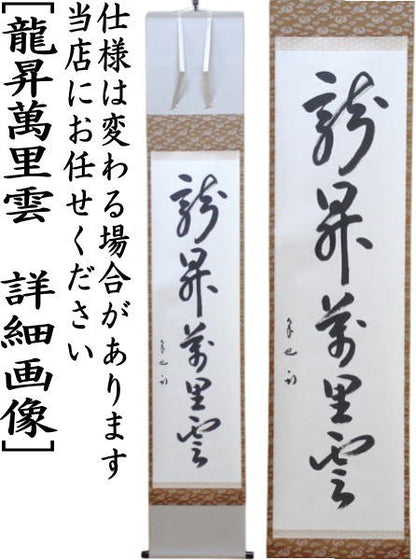 仕様は変わる場合があります
当店にお任せください
[龍昇萬里雲 詳細画像]
龍昇萬里雲
龍昇萬里雲